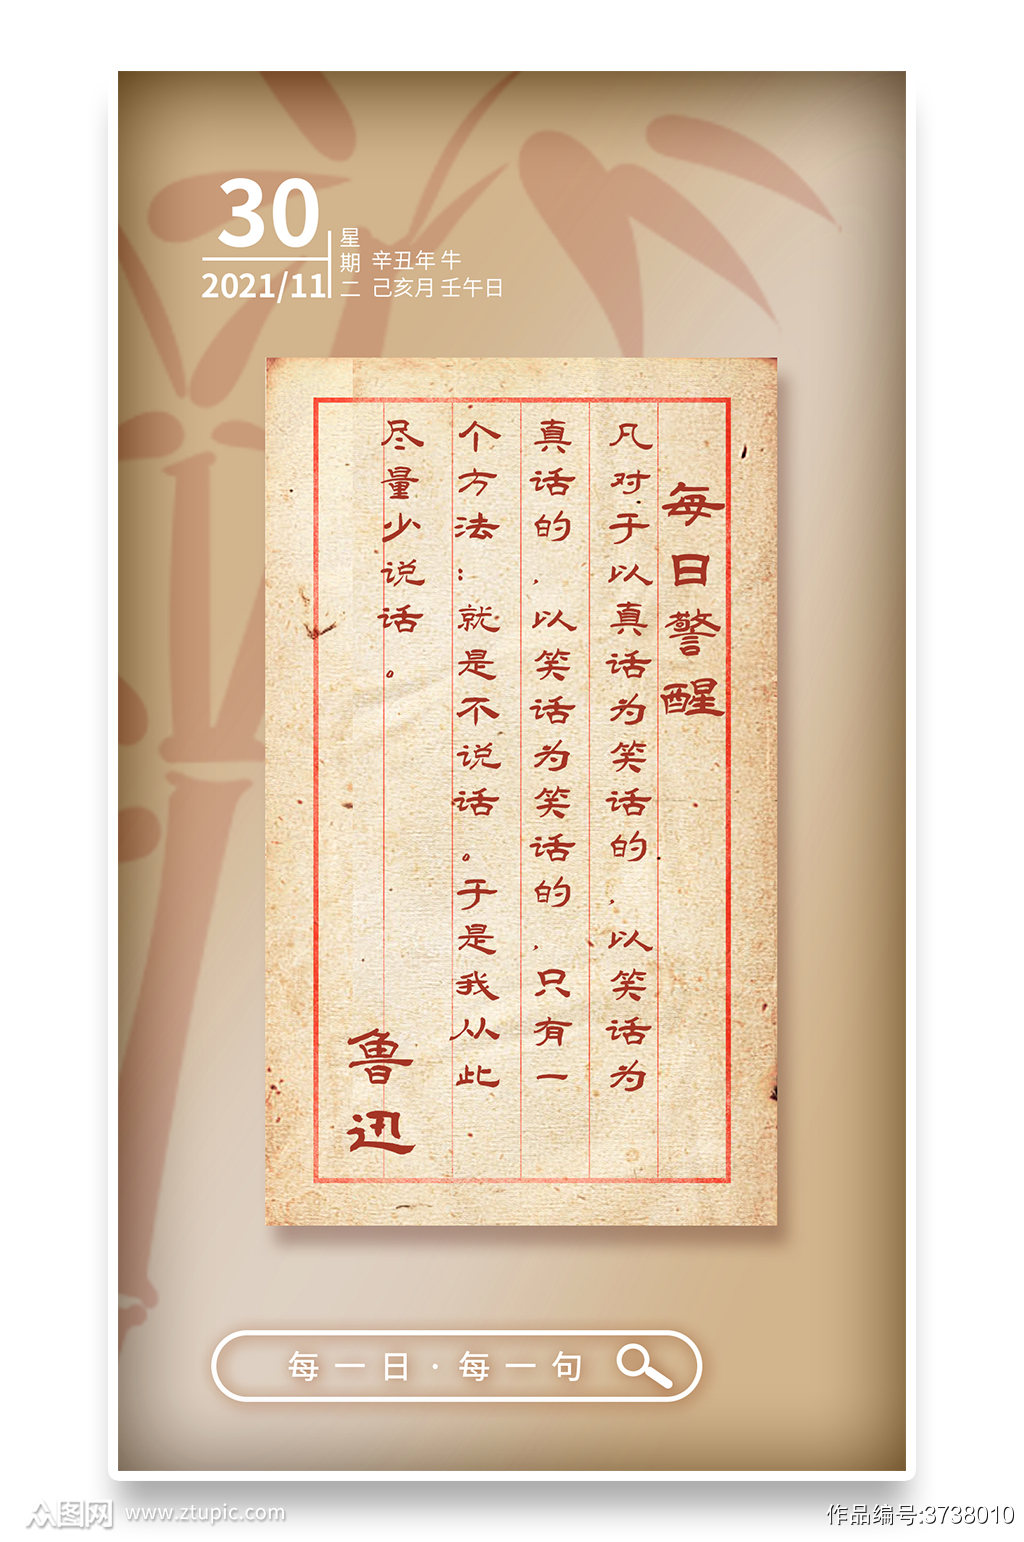 30
2021/11
星期二
辛丑年 牛
己亥月 壬午日
每日警醒
凡对于以真话为笑话的,以笑话为
真话的,以笑话为笑话的,只有一
个方法:就是不说话。于是我从此
尽量少说话。
鲁迅
每一日·每一句
众图网 www.ztupic.com
作品编号:3738010